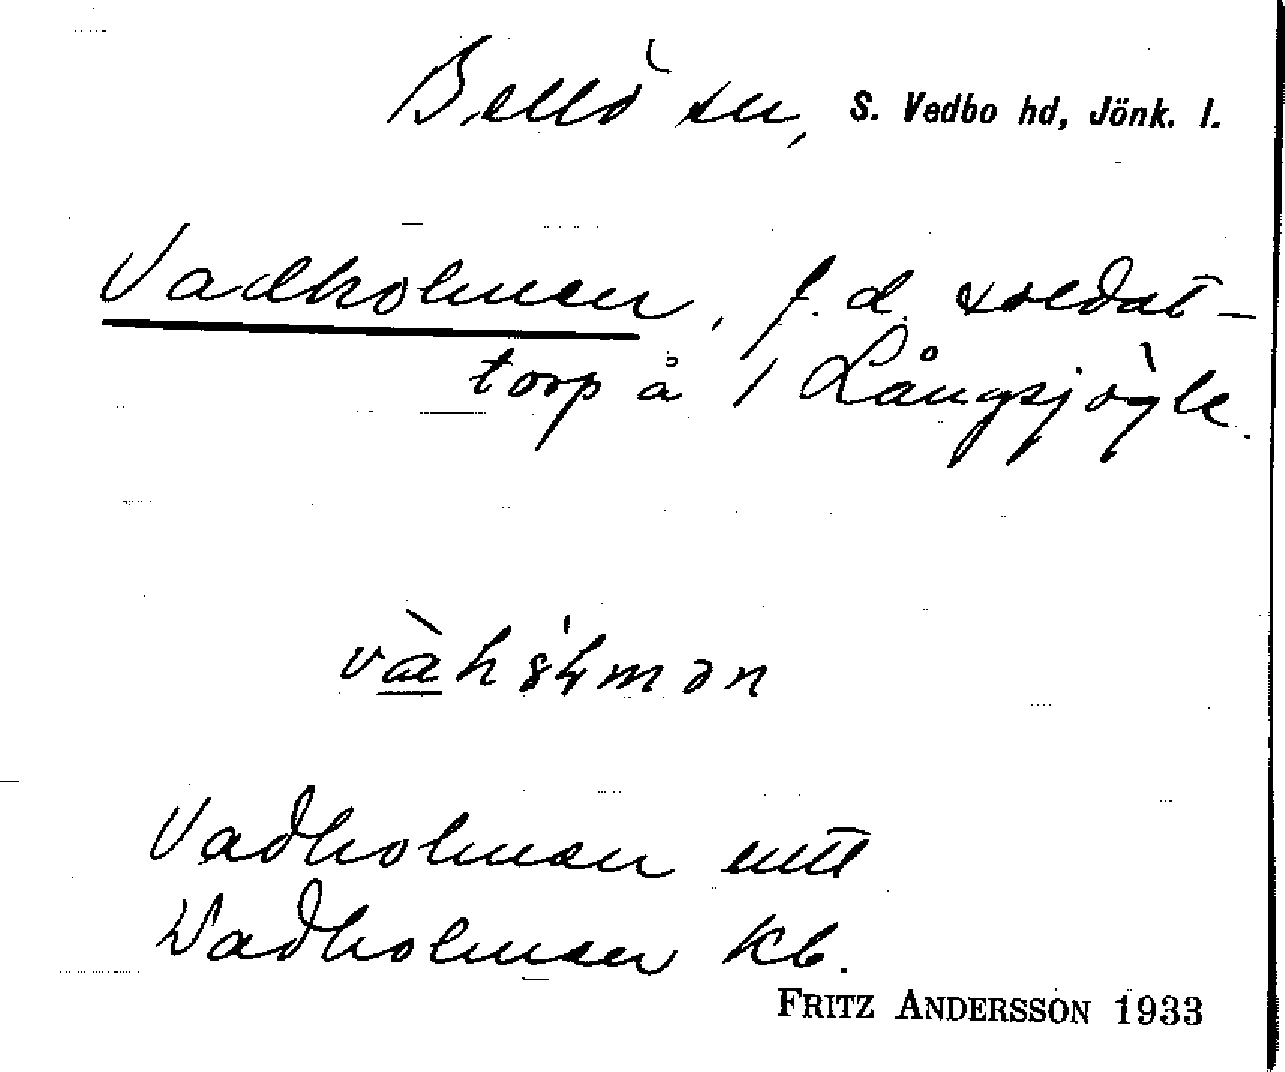 Bellö sn, S. Vedbo hd, Jönk. l.
Vadholmen, f. d. soldat-
torp å 1 Långsjögle.
Vadholmen mtl
Wadholmen kb.
FRITZ ANDERSSON 1933